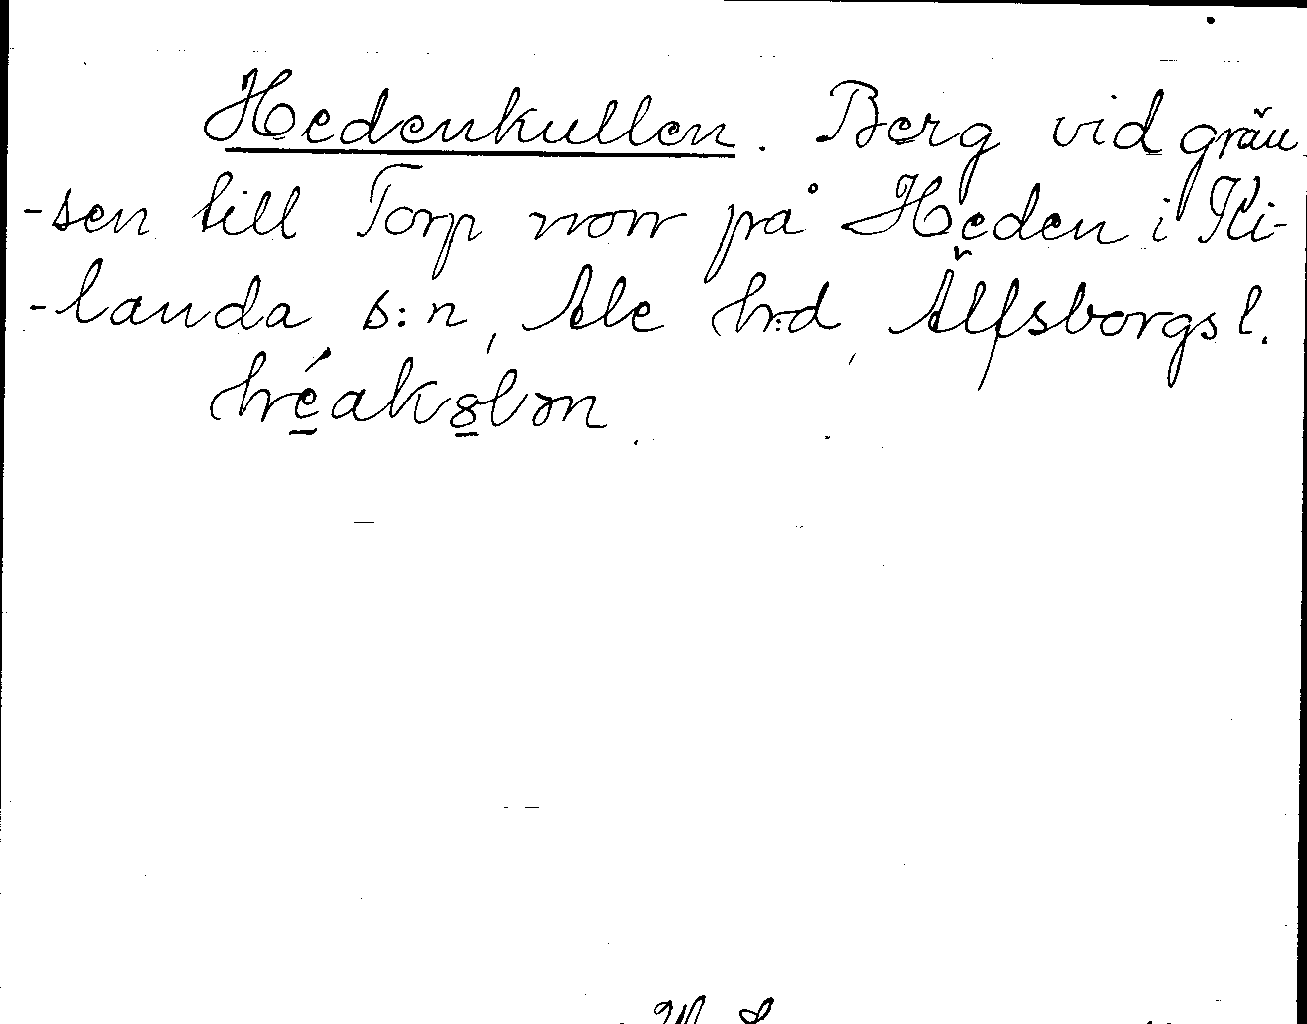 Hedenkullen. Berg vid grän
-sen till Torp norr på Heden i Ki-
-landa s:n, Ale hrd, Älfsborgs l.